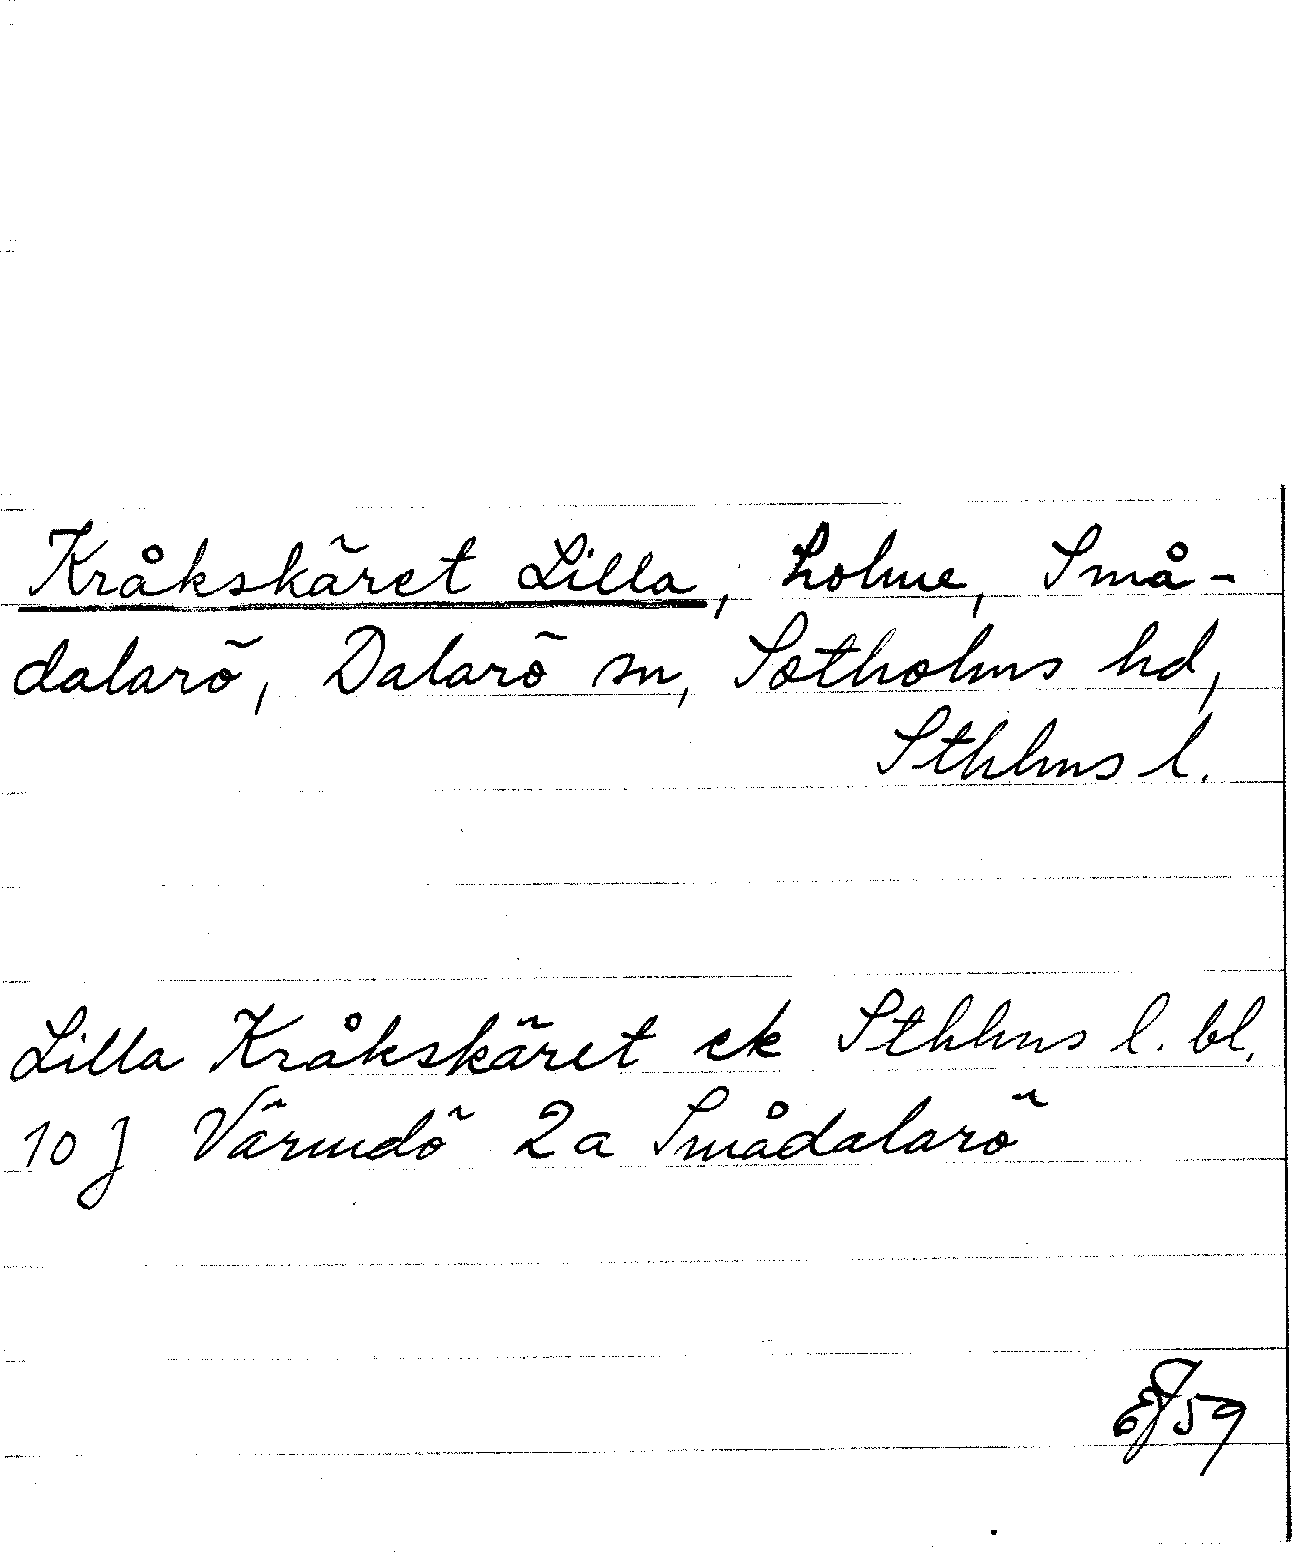 Kråkskäret Lilla, holme, Små-
dalarö, Dalarö sn, Sotholms hd,
Sthlms l.
Lilla Kråkskäret ek Sthlms l. bl.
10 J Värmdö 2a Smådalarö
59